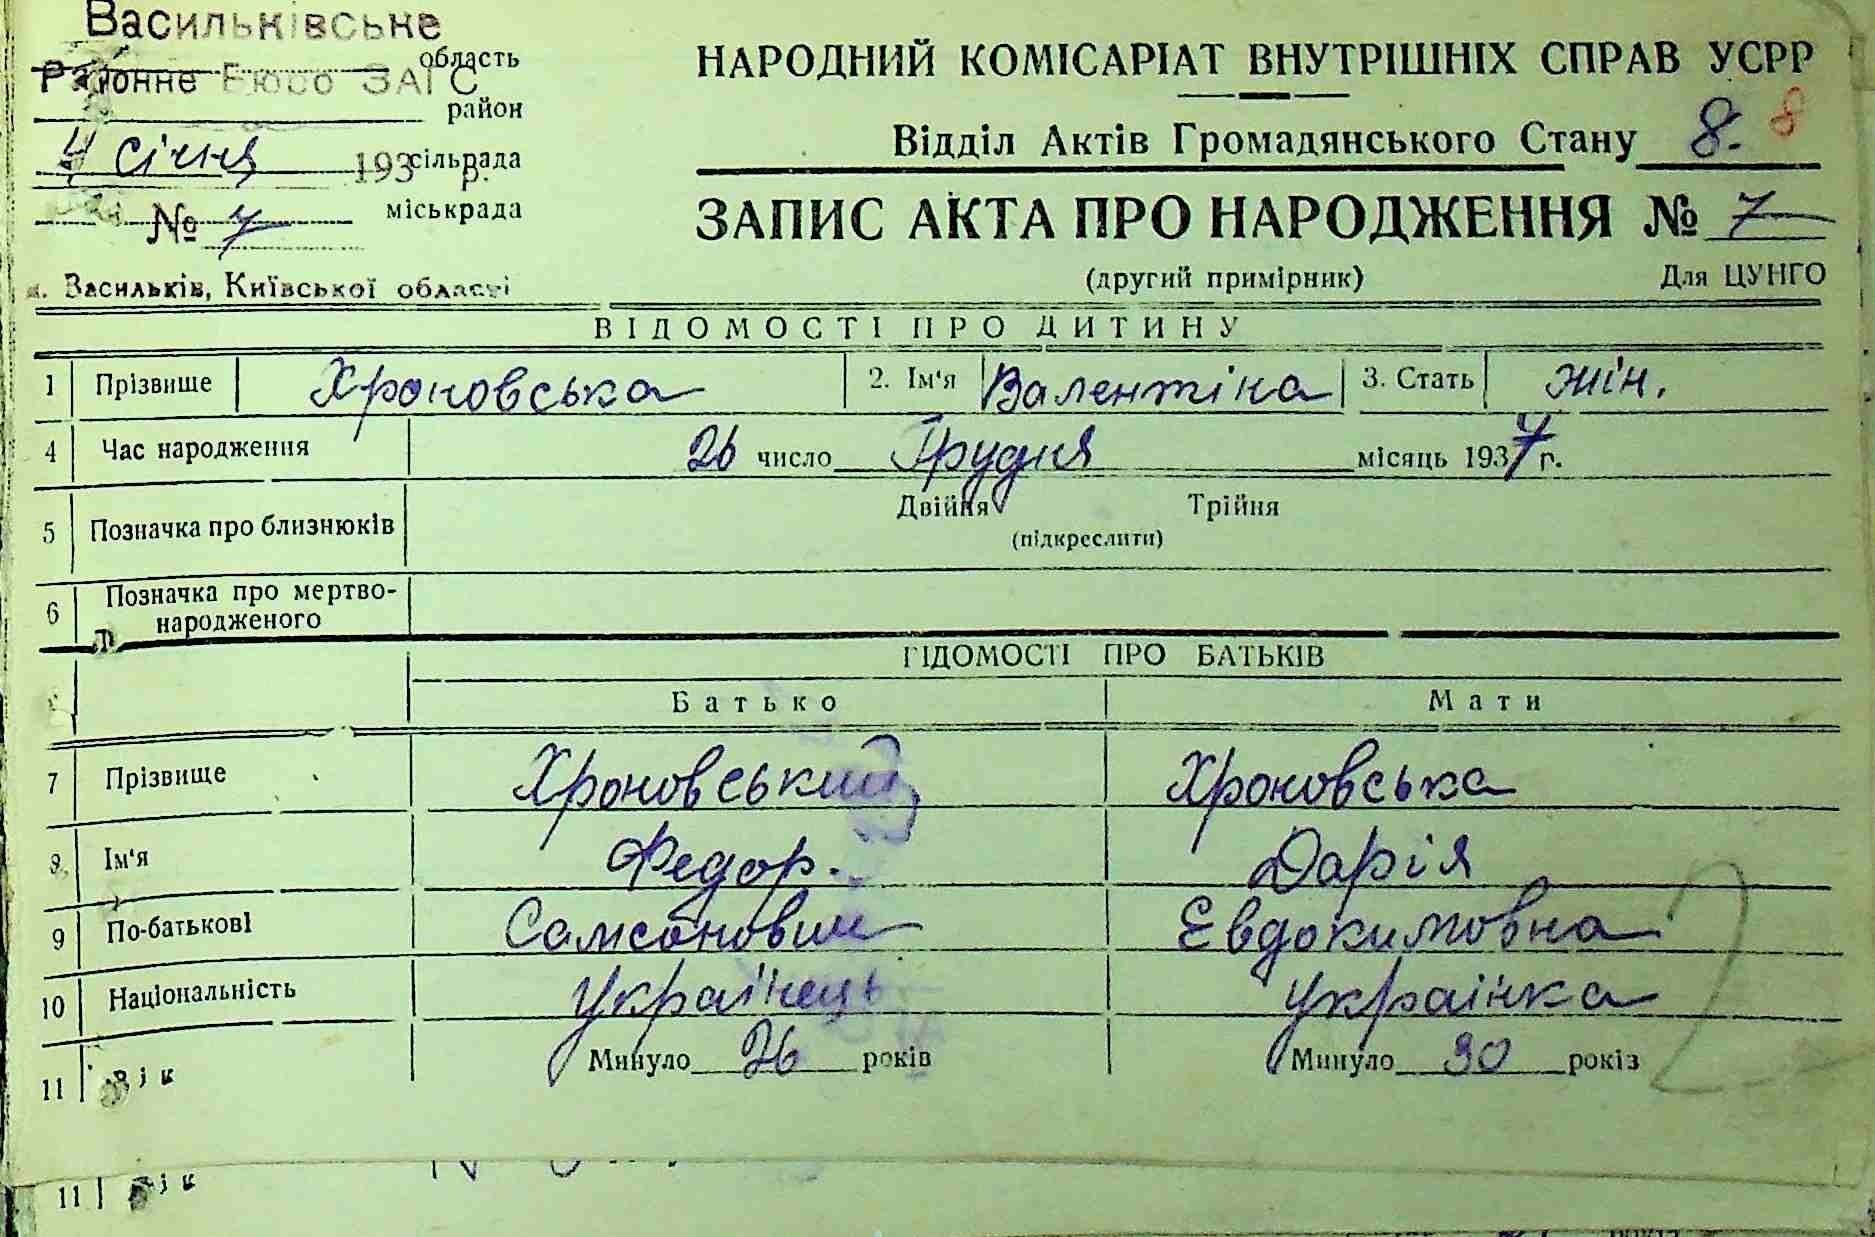 Васильківське
область
Районне Бюро ЗАГС
район
4 січня 193 р. сільрада
№ 7 міськрада
м. Васильків, Київської області
НАРОДНИЙ КОМІСАРІАТ ВНУТРІШНІХ СПРАВ УСРР
Відділ Актів Громадянського Стану 8. 8
ЗАПИС АКТА ПРО НАРОДЖЕННЯ № 7
(другий примірник) Для ЦУНГО
ВІДОМОСТІ ПРО ДИТИНУ
1 Прізвище Хроновська 2. Ім'я Валентіна 3. Стать жін.
4 Час народження 26 число Грудня місяць 1937 г.
5 Позначка про близнюків Двійня Трійня
(підкреслити)
6 Позначка про мертво-
народженого
ВІДОМОСТІ ПРО БАТЬКІВ
Батько Мати
7 Прізвище Хроновський Хроновська
8 Ім'я Федор. Дарія
9 По-батькові Самсонович Евдокимовна
10 Національність Українець Українка
11 Вік Минуло 26 років Минуло 30 років
11 Вік